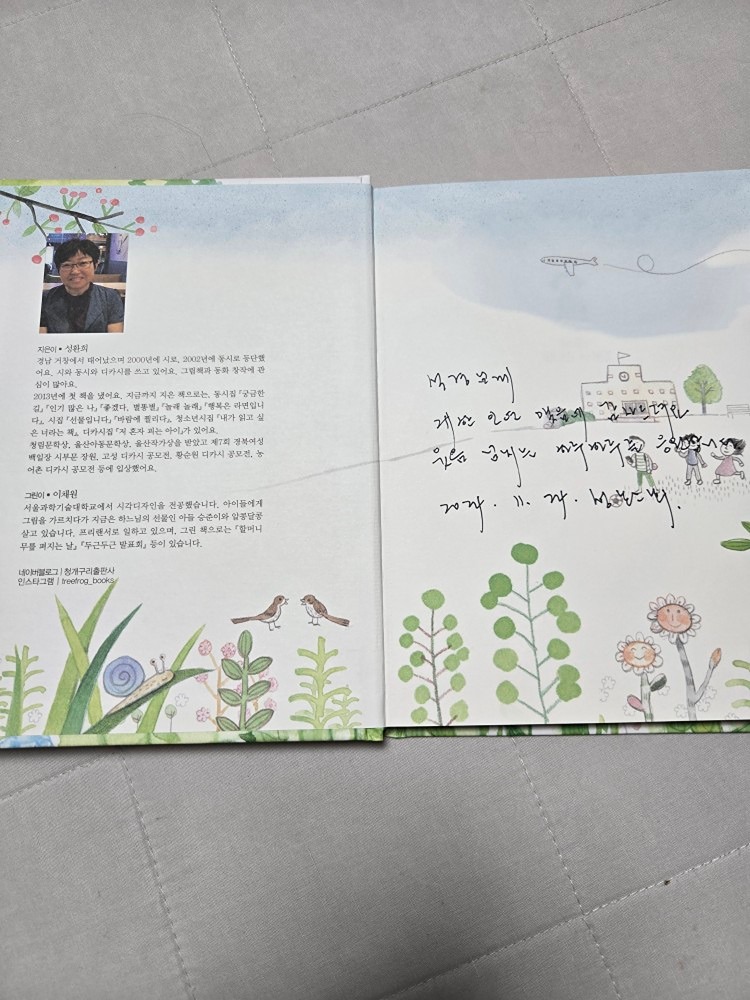 지은이 • 성환희
경남 거창에서 태어났으며 2000년에 시로, 2002년에 동시로 등단했
어요. 시와 동시와 디카시를 쓰고 있어요. 그림책과 동화 창작에 관
심이 많아요.
2013년에 첫 책을 냈어요. 지금까지 지은 책으로는, 동시집 『궁금한
길』 『인기 많은 나』 『좋겠다, 별똥별』 『놀래 놀래』 『행복은 라면입니
다』, 시집 『선물입니다』 『바람에 찔리다』, 청소년시집 『내가 읽고 싶
은 너라는 책』, 디카시집 『저 혼자 피는 아이』가 있어요.
청림문학상, 울산아동문학상, 울산작가상을 받았고 제7회 경북여성
백일장 시부문 장원, 고성 디카시 공모전, 황순원 디카시 공모전, 농
어촌 디카시 공모전 등에 입상했어요.
그린이 • 이재원
서울과학기술대학교에서 시각디자인을 전공했습니다. 아이들에게
그림을 가르치다가 지금은 하느님의 선물인 아들 승준이와 알콩달콩
살고 있습니다. 프리랜서로 일하고 있으며, 그린 책으로는 『할머니
무릎 펴지는 날』 『두근두근 발표회』 등이 있습니다.
네이버블로그 | 청개구리출판사
인스타그램 | treefrog_books
감사드려요
하루하루를 응원합니다
11.